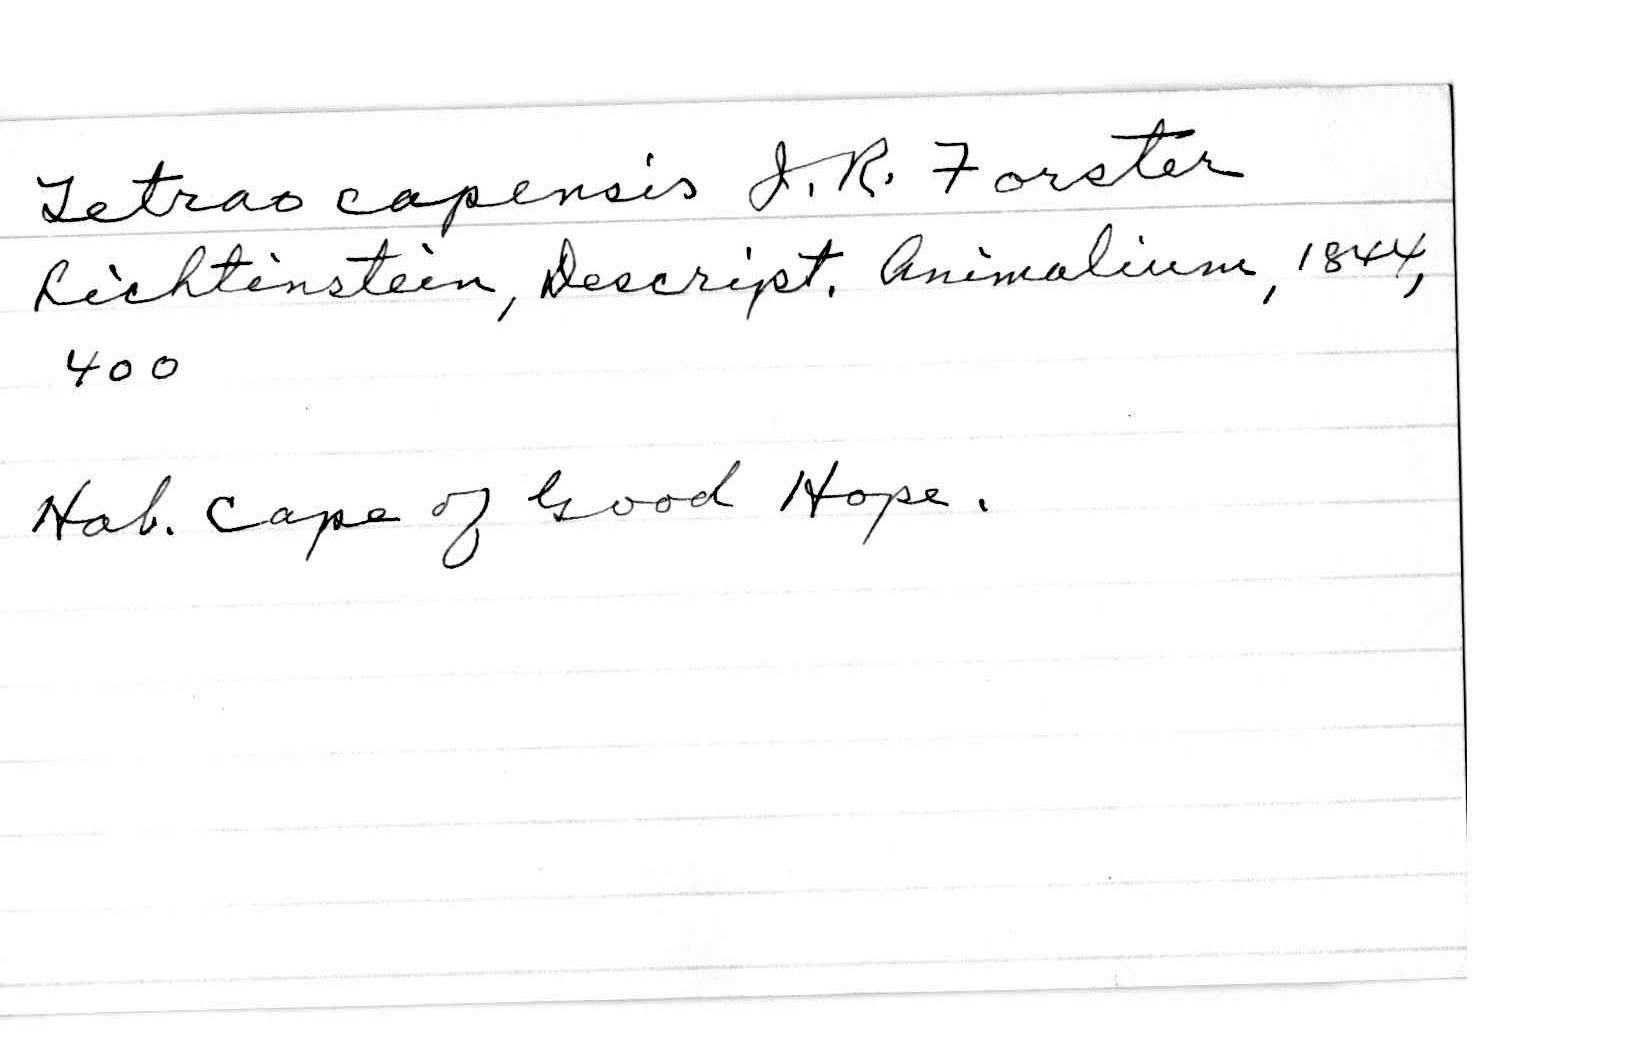 Tetrao capensis J. R. Forster
Lichtinstein, Descript. Animalium, 1844,
400
Hab. Cape of Good Hope.